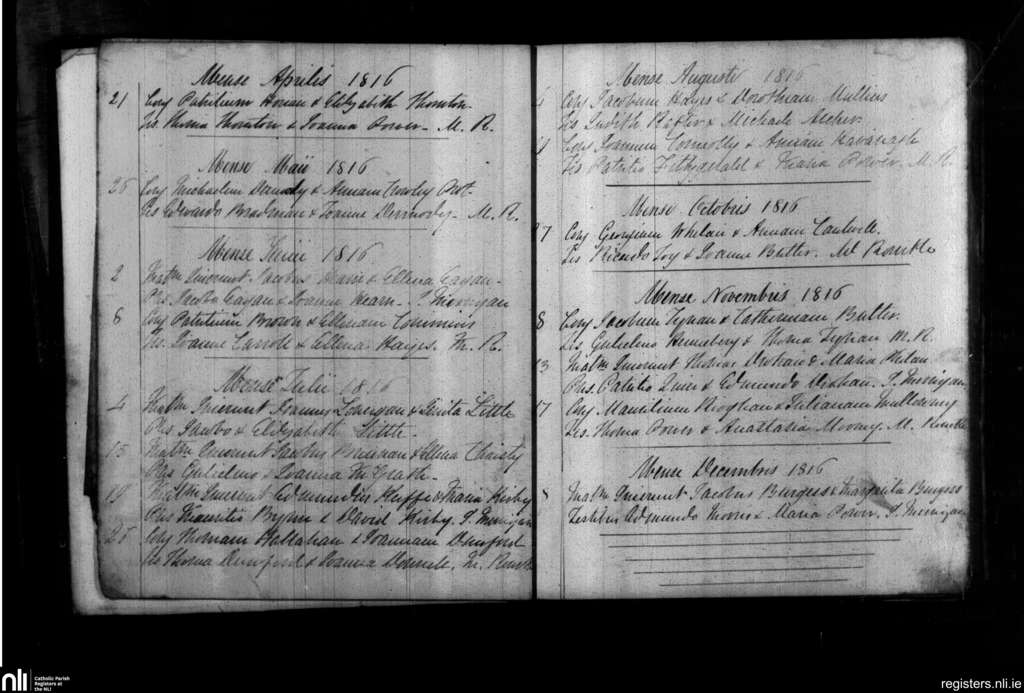 Mense Aprilis 1816
21 Conj Patritium Honan & Elizabeth Thornton
Tes Thoma Thornton & Joanna Power - M. R.
Mense Maii 1816
26 Conj Michaelem & Annam Crowley
Tes Edwardo & Joanne Dermody - M. R.
Mense Junii 1816
2 Matm Inierunt Jacobus & Ellena Eagan
Pbs Jacobo Eagan & Joanne Hearn - J Merrigan
8 Conj Patritium Brown & Ellenam Commins
Tes. Joanne Carroll & Ellena Hayes. M. R.
Mense Julii 1816
4 Matm Inierunt Joannes Lonergan & Little
Pbs Jacobo & Elizabeth Little
15 Matm Inierunt Jacobus Brennan & Ellena Christy
Pbs Gulielmo & Joanna McGrath
19 Matm Inierunt Edmundus Keeffe & Maria Kirby
Pbs Mauritio Brynn & David Kirby. J. Merrigan
25 Conj Thomam Hallahan & Joannam Dunford
Tes Thoma Dunford & Joanna M.
Mense Augusti 1816
4 Conj Jacobum Hayes & Dorotheam Mullins
Tes Judith & Michaele Archer
Conj Joannem Connolly & Annam Kavanagh
Tes Patritio Fitzgerald & Maria Power. M. R.
Mense Octobris 1816
27 Conj Georgium Whelan & Annam Cantwell.
Tes Ricardo Foy & Joanne Butler. M.
Mense Novembris 1816
8 Conj Jacobum Tynan & Catherinam Butler
Tes. Gulielmo Kenneberg & Thoma Tynan M. R.
13 Matm Inierunt Thomas & Maria Phelan
Pbs. Patritio & Edmundo J. Merrigan
17 Conj Mauritium & Julianam
Tes. Thoma Power & Anastasia M.
Mense Decembris 1816
8 Matm Inierunt Jacobus Burgess & Margarita Burgess
Testibus Edmundo & Maria Power. J. Merrigan
nli Catholic Parish
Registers at
the NLI
registers.nli.ie